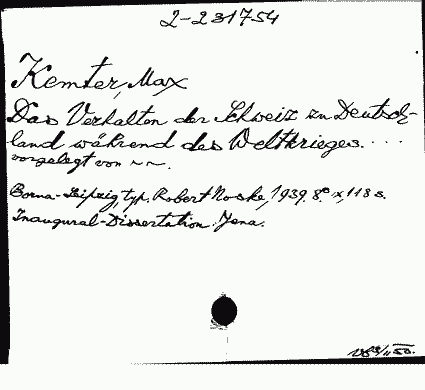 2-231754
Kemter, Max
Das Verhalten der Schweiz zu Deutsch-
land während des Weltkrieges....
vorgelegt von ~~.
Borna-Leipzig, typ. Robert Noske, 1939. 8° x, 118 s.
Inaugural-Dissertation. Jena.